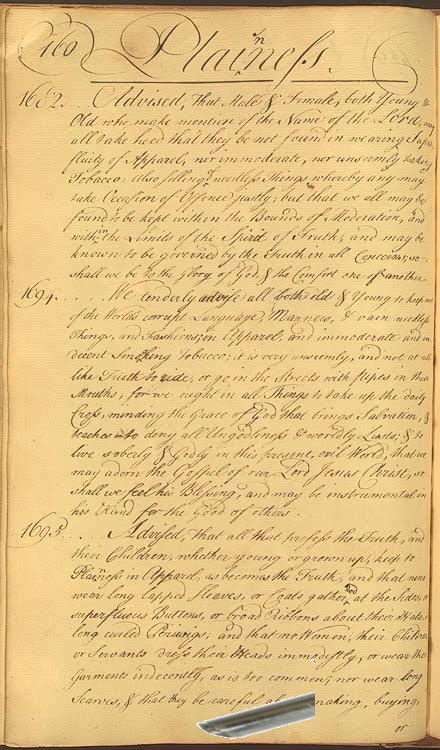 160 Plainness.
1682... Advised, That Male & Female, both Young &
Old who make mention of the Name of the Lord, may
all take heed that they be not found in wearing Supe
fluity of Apparel, nor immoderate, nor unseemly taking
Tobacco: Also selling needless Things whereby any may
take Occasion of Offence justly; but that we all may be
found to be kept within the Bounds of Moderation, and
within the Limits of the Spirit of Truth; and may be
known to be governed by the Truth in all Concerns, so
shall we be to the Glory of God, & the Comfort one of another.
1694..... We tenderly advise all both old & Young to keep out
of the World's corrupt Language, Manners, & vain needless
Things, and Fashions, in Apparel, and immoderate and in
decent Smoking Tobacco; it is very unseemly, and not at all
like Truth to ride, or go in the Streets with pipes in their
Mouths; for we ought in all Things to take up the daily
Cross, minding the Grace of God that brings Salvation, &
teaches to deny all Ungodliness & worldly Lusts, & to
live soberly & Godly in this present, evil World, that we
may adorn the Gospel of our Lord Jesus Christ, so
shall we feel his Blessing, and may be instrumental in
his Hand for the Good of others.
1695... Advised, That all that profess the Truth, and
their Children, whether young or grown up, keep to
Plainness in Apparel, as becomes the Truth, and that none
wear long lapped Sleeves, or Coats gathered at the Sides, or
superfluous Buttons, or broad Ribbons about their Hats, or
long curled Periwigs; and that no Women, their Children
or Servants dress their Heads immodestly, or wear their
Garments indecently, as is too common; nor wear long
Scarves, & that they be careful making, buying,
or